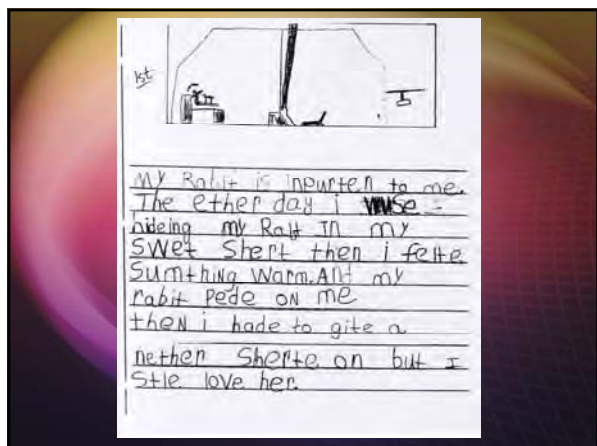 1st
My Rabit is inpurten to me.
The ether day i wuse
hideing my Rabt IN my
swet Shert then i felte
Sumthing warm. ANt my
rabit Pede ON me
then i hade to gite a
nether Sherte on but I
Stle love her.